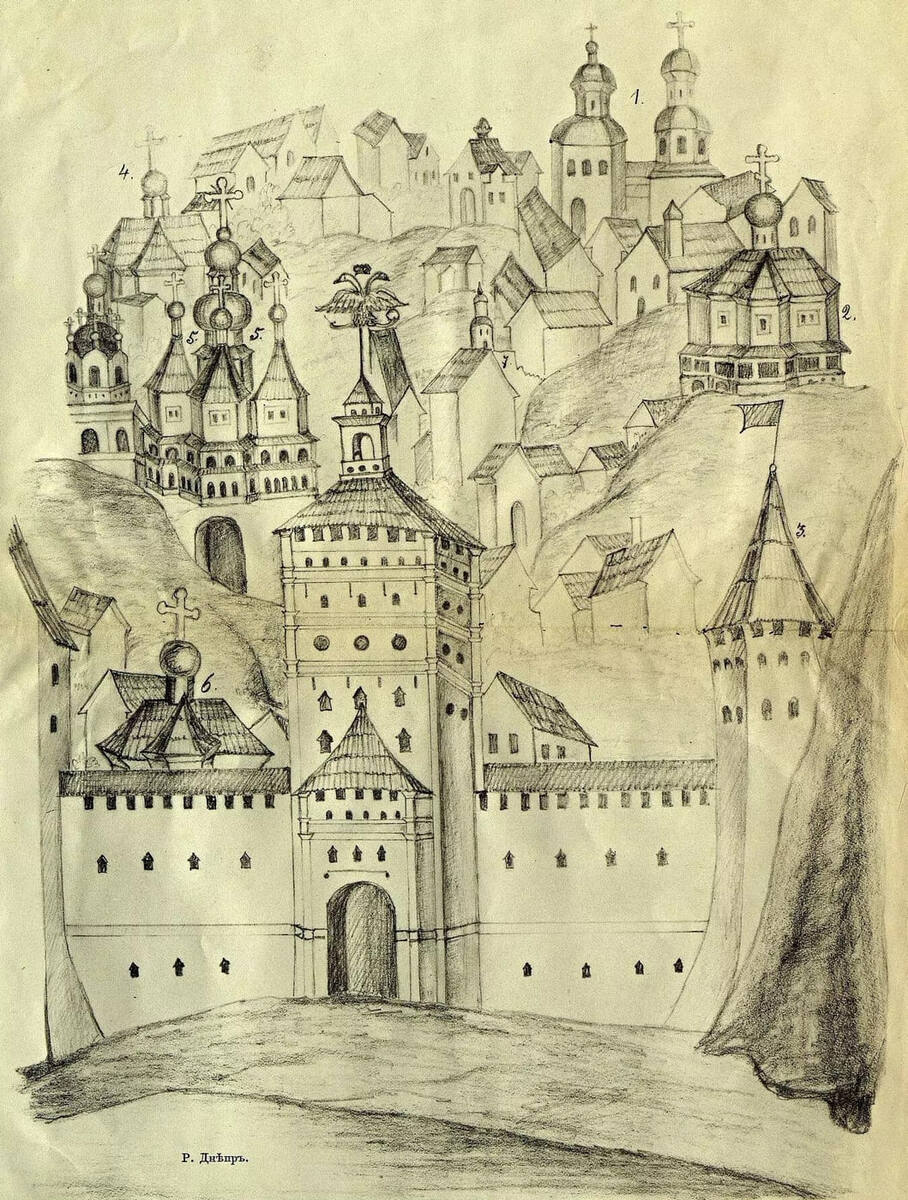 1.
4.
2.
5.
5.
7
3.
6.
Р. Днѣпръ.